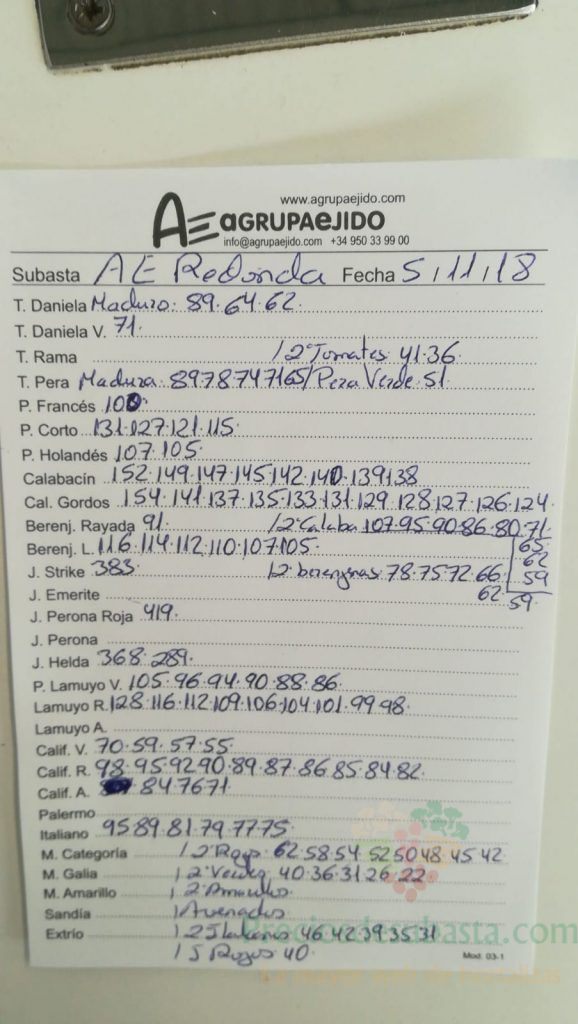 www.agrupaejido.com
AE AGRUPAEJIDO
info@agrupaejido.com +34 950 33 99 00
Subasta AE Redonda Fecha 5,11,18
T. Daniela Maduro: 89.64.62.
T. Daniela V. 71.
T. Rama / 2ª Tomates 41.36.
T. Pera Madura: 89 78 74 71 65 / Pera Verde 51.
P. Francés 100.
P. Corto 131.127.121.115
P. Holandés 107.105.
Calabacín 152.149.147.145.142.140.139 138
Cal. Gordos 154.141.137.135.133.131.129.128.127.126.124
Berenj. Rayada 91. / 2ª Calaba 107.95.90.86.80.71
Berenj. L. 116.114.112.110.107.105. 65.
62
J. Strike 383 12 berengenas 78.75.72.66. 59
J. Emerite 62. 59.
J. Perona Roja 419.
J. Perona
J. Helda 368.289.
P. Lamuyo V. 105.96.94.90.88.86.
Lamuyo R. 128.116.112.109.106.104.101.99 98.
Lamuyo A.
Calif. V. 70.59.57.55.
Calif. R. 98.95.92 90.89.87.86 85.84.82.
Calif. A. 84.76 71
Palermo
Italiano 95 89.81.79.77 75
M. Categoria / 2ª Rojos 62.58.54 52 50 48.45 42
M. Galia / 2ª Verdes 40.36.31 26.22
M. Amarillo / 2ª Amarillos
Sandía
Extrio / 2 Italianos 46 42 39 35 31
/ 5 Rojos 40.
Mod. 03-1
Preciosdesubasta.com